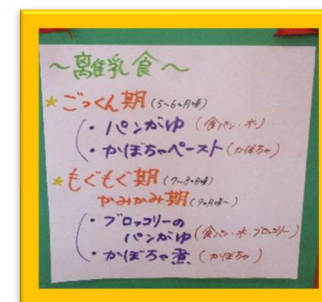 ～離乳食～
★ごっくん期(5~6ヶ月頃)
・パンがゆ(食パン・水)
・かぼちゃペースト(かぼちゃ)
★もぐもぐ期(7~8ヶ月頃)
かみかみ期(9ヶ月頃~)
・ブロッコリーの
パンがゆ(食パン・水・ブロッコリー)
・かぼちゃ煮(かぼちゃ)